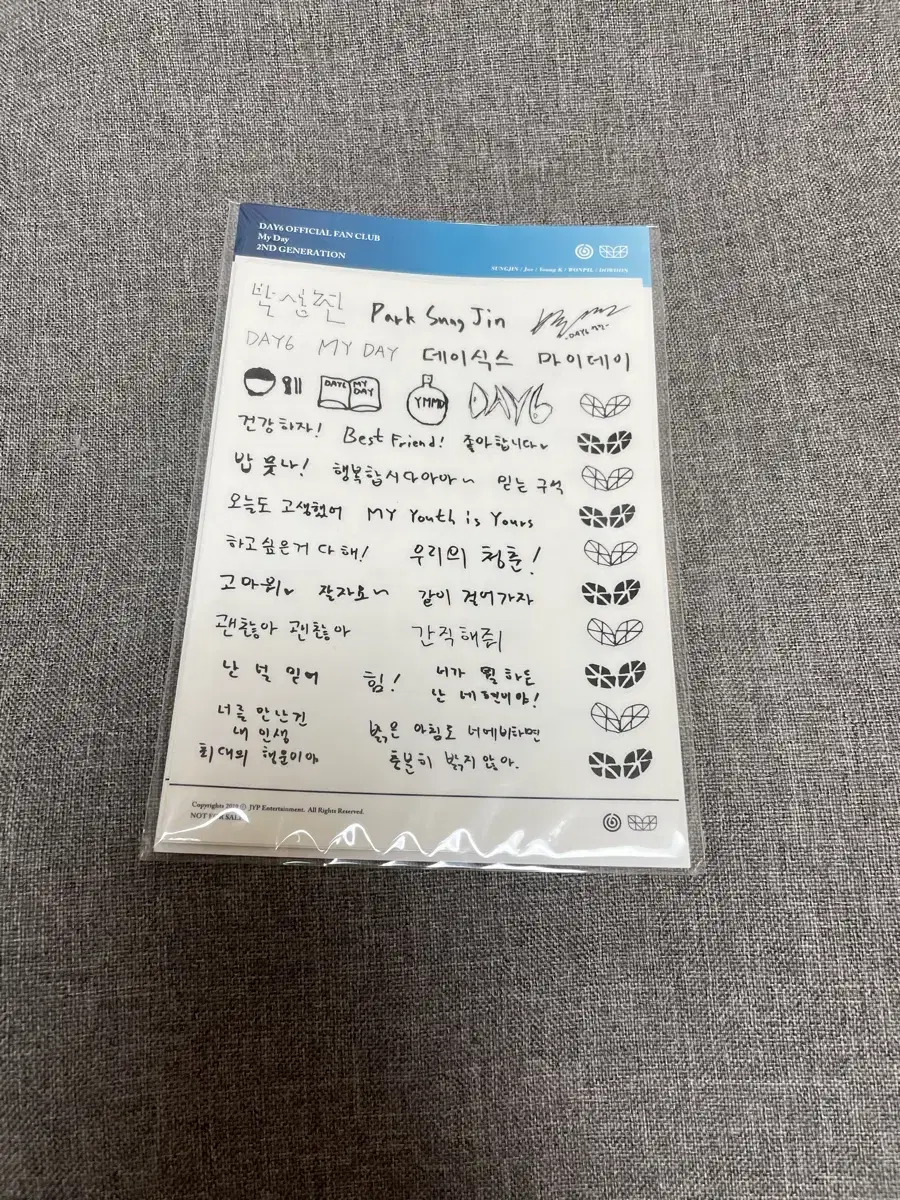 DAY6 OFFICIAL FAN CLUB
My Day
2ND GENERATION
SUNGJIN / Jae / Young K / WONPIL / DOWOON
박성진 Park Sung Jin
-DAY6
DAY6 MY DAY 데이식스 마이데이
DAY6 MY DAY YMMD DAY6
건강하자! Best Friend! 좋아합니다
밥 뭇나! 행복합시다아아~ 믿는 구석
오늘도 고생했어 MY Youth is Yours
하고싶은거 다 해! 우리의 청춘!
고마워 잘자요~ 같이 걸어가자
괜찮아 괜찮아 간직해줘
난 널 믿어 힘! 네가 뭘 하든
난 네편이야!
너를 만난건
내 인생
최대의 행운이야
밝은 아침도 너에비하면
충분히 밝지 않아.
Copyrights 2019 © JYP Entertainment. All Rights Reserved.
NOT FOR SALE